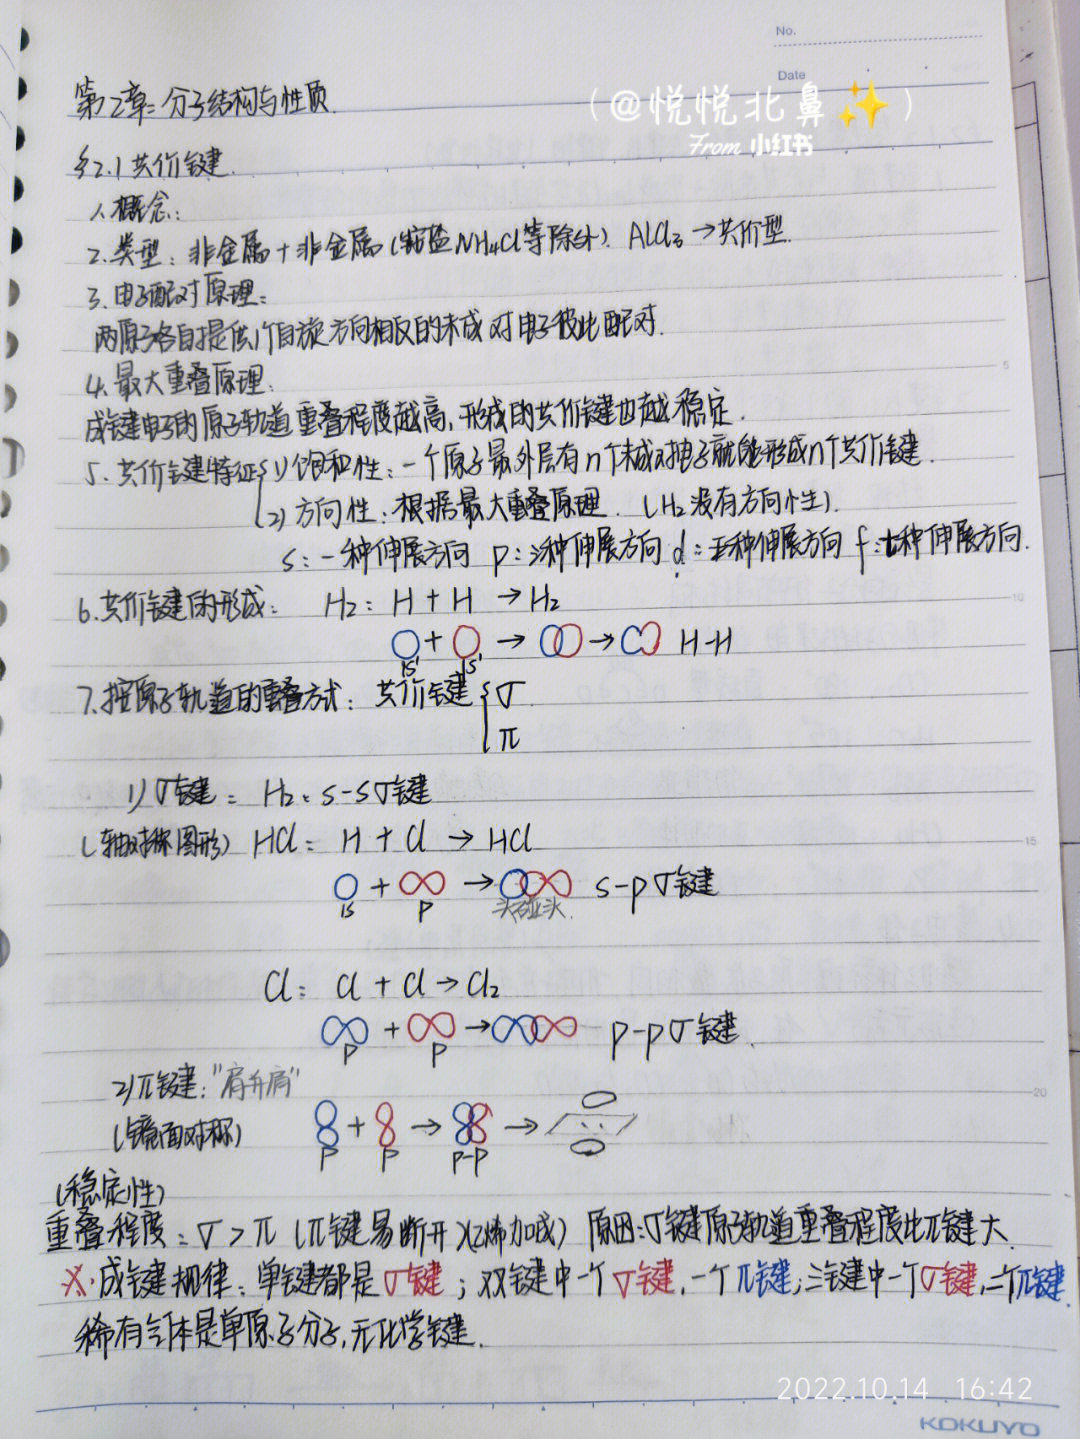 No.
Date
(@悦悦北鼻✨)
From 小红书
第2章:分子结构与性质.
§2.1 共价键.
1.概念:
2.类型:非金属+非金属(铵盐NH4Cl等除外). AlCl3→共价型.
3.电子配对原理:
两原子各自提供1个自旋方向相反的未成对电子彼此配对.
4.最大重叠原理:
成键电子的原子轨道重叠程度越高,形成的共价键也越稳定.
5.共价键特征{1)饱和性:一个原子最外层有n个未成对电子就能形成n个共价键.
2)方向性:根据最大重叠原理.(H2没有方向性).
s:一种伸展方向 p:3种伸展方向 d:五种伸展方向 f:七种伸展方向.
6.共价键的形成: H2:H+H→H2
+ → → H-H
1s¹ 1s¹
7.按原子轨道的重叠方式:共价键{σ
π
1)σ键: H2:s-sσ键
(轴对称图形) HCl: H+Cl→HCl
+ → s-pσ键
1s p 头碰头.
Cl: Cl+Cl→Cl2
+ → p-pσ键.
p p
2)π键:"肩并肩"
(镜面对称) + → →
p p p-p
(稳定性)
重叠程度:σ>π(π键易断开)(乙烯加成) 原因:σ键原子轨道重叠程度比π键大.
※.成键规律:单键都是σ键;双键中一个σ键,一个π键;三键中一个σ键,二个π键.
稀有气体是单原子分子,无化学键.
2022.10.14 16:42
KOKUYO
5
10
15
20